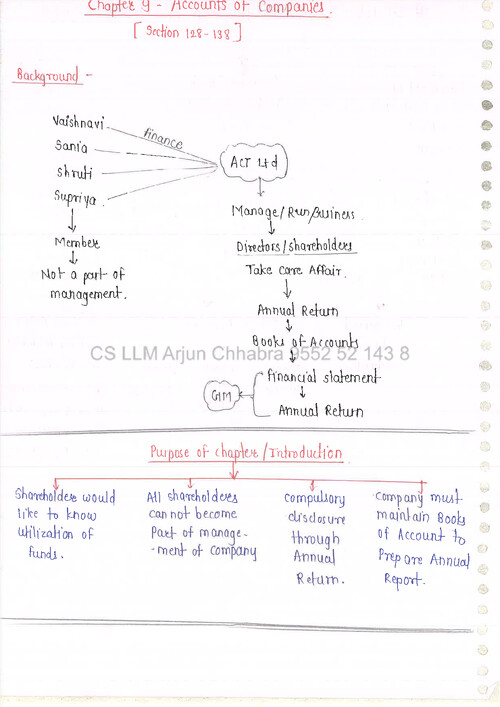 Chapter 9 - Accounts of Companies.
[Section 128-138]
Background -
Vaishnavi
Sania
Shruti
Supriya
finance
Members
Not a part of
management.
ACT Ltd
Manage/Run/Business
Directors/shareholders
Take care Affair.
Annual Return
Books of Accounts
CS LLM Arjun Chhabra 9552 52 143 8
Financial statement
GM
Annual Return
Purpose of chapter/Introduction
Shareholders would
like to know
utilization of
funds.
All shareholders
cannot become
Part of manage-
-ment of company
compulsory
disclosure
through
Annual
Return.
company must
maintain Books
of Account to
Prepare Annual
Report.